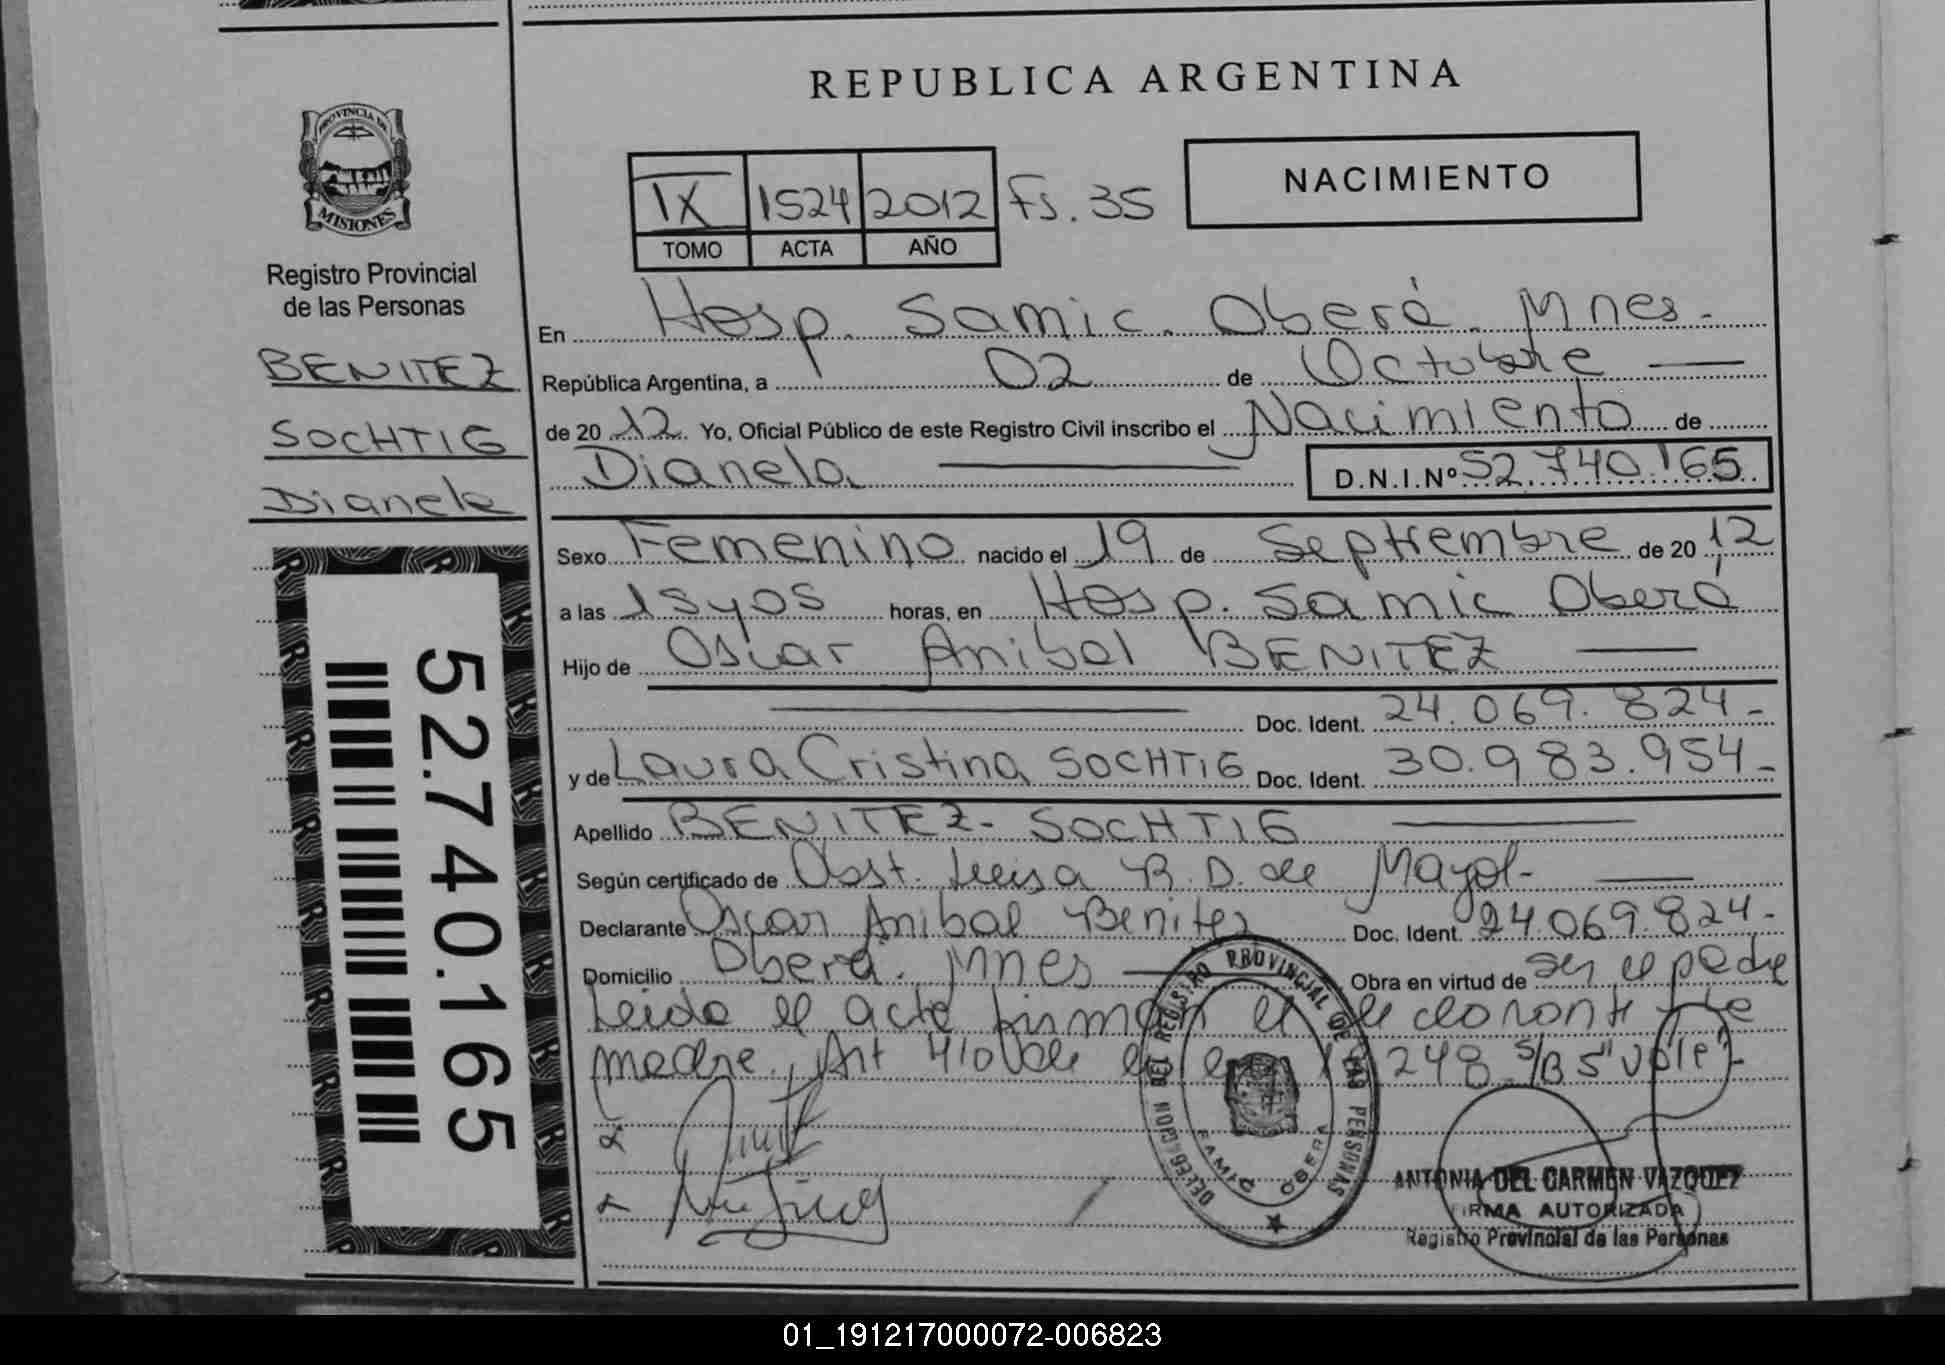 REPUBLICA ARGENTINA
PROVINCIA DE
MISIONES
Registro Provincial
de las Personas
BENITEZ
SOCHTIG
Dianela
52.740.165
IX 1524 2012 Fs. 35
TOMO ACTA AÑO
NACIMIENTO
En Hosp. Samic. Oberá. Mnes.
República Argentina, a 02 de Octubre
de 20 12. Yo, Oficial Público de este Registro Civil inscribo el Nacimiento de
Dianela D.N.I.Nº 52.740.165
Sexo Femenino nacido el 19 de Septiembre de 20 12
a las 15y05 horas, en Hosp. Samic Oberá
Hijo de Oscar Anibal BENITEZ
Doc. Ident. 24.069.824-
y de Laura Cristina SOCHTIG Doc. Ident. 30.983.954-
Apellido BENITEZ- SOCHTIG
Según certificado de Obst. Luisa R. D. de Mayol-
Declarante Oscar Anibal Benitez Doc. Ident. 24.069.824-
Domicilio Oberá. Mnes Obra en virtud de ser el padre
Leida el acta firman el declarante y la
madre. Art 248 S/B 5 "vale"-
DELEGACION DEL REGISTRO PROVINCIAL DE LAS PERSONAS
SAMIC OBERA
ANTONIA DEL CARMEN VAZQUEZ
FIRMA AUTORIZADA
Registro Provincial de las Personas
01_191217000072-006823